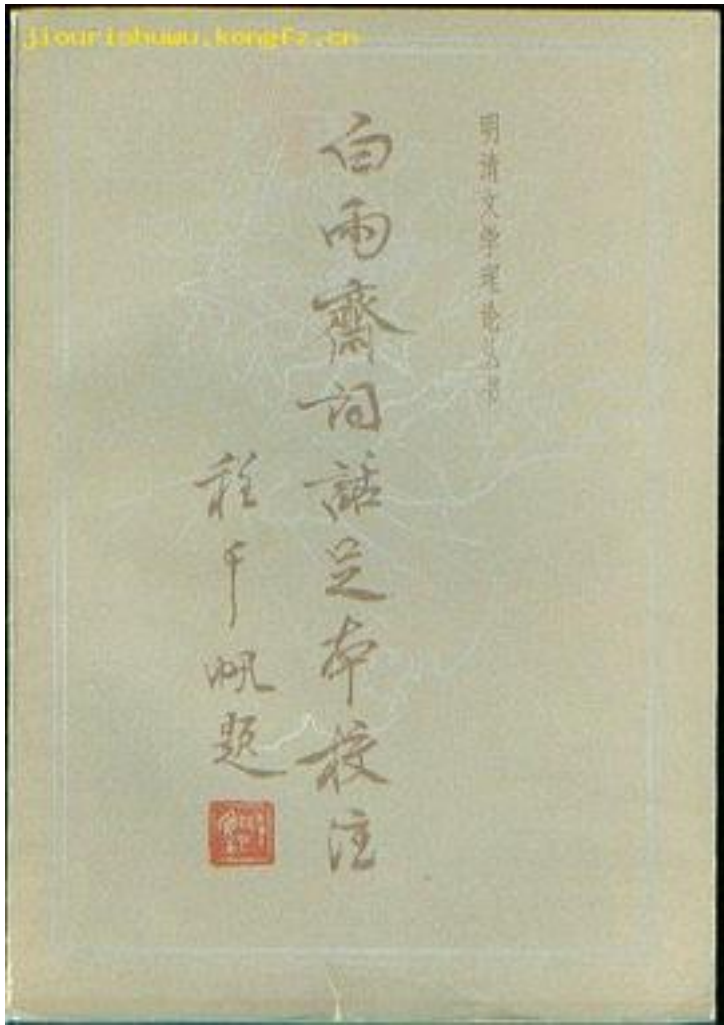 jiourishuwu.kongfz.cn
明清文学理论丛书
白雨齋词話足本校注
程千帆题